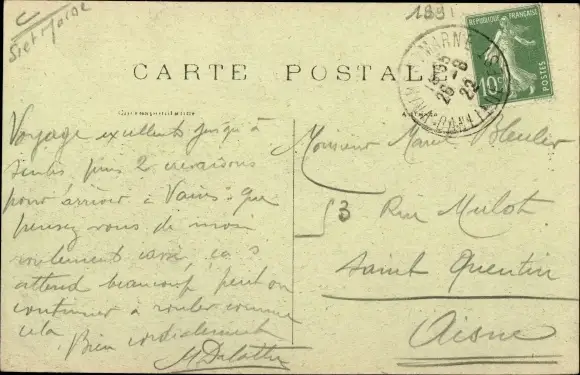 Set Marne
1891
RÉPUBLIQUE FRANÇAISE
10c
POSTES
MARNE
26 -8
22
CARTE POSTALE
Correspondance
Adresse
Voyage excellent jusqu'à
Senlis puis 2 crevaisons
pour arriver à Vains. Que
pensez vous de mon
roulement cassé, ça s
attend beaucoup, peut on
continuer à rouler comme
cela
Bien cordialement
Monsieur Marcel
53 Rue Mulot
Saint Quentin
Aisne